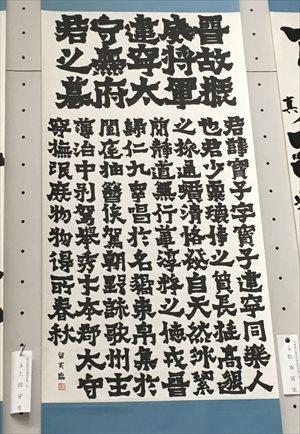 晉故振
威將軍
建寧太
守爨府
君之墓
君諱寶子字寶子建寧同樂人
也君少稟瓌偉之質長挺高邈
之操通曠清恪發自天然冰絜
簡靜道兼行葦淳粹之德戎晉
歸仁九皋唱於名響束帛集於
閨庭抽簪俟駕朝野詠歌州主
簿治中別駕舉秀才本郡太守
寧撫氓庶物物得所春秋